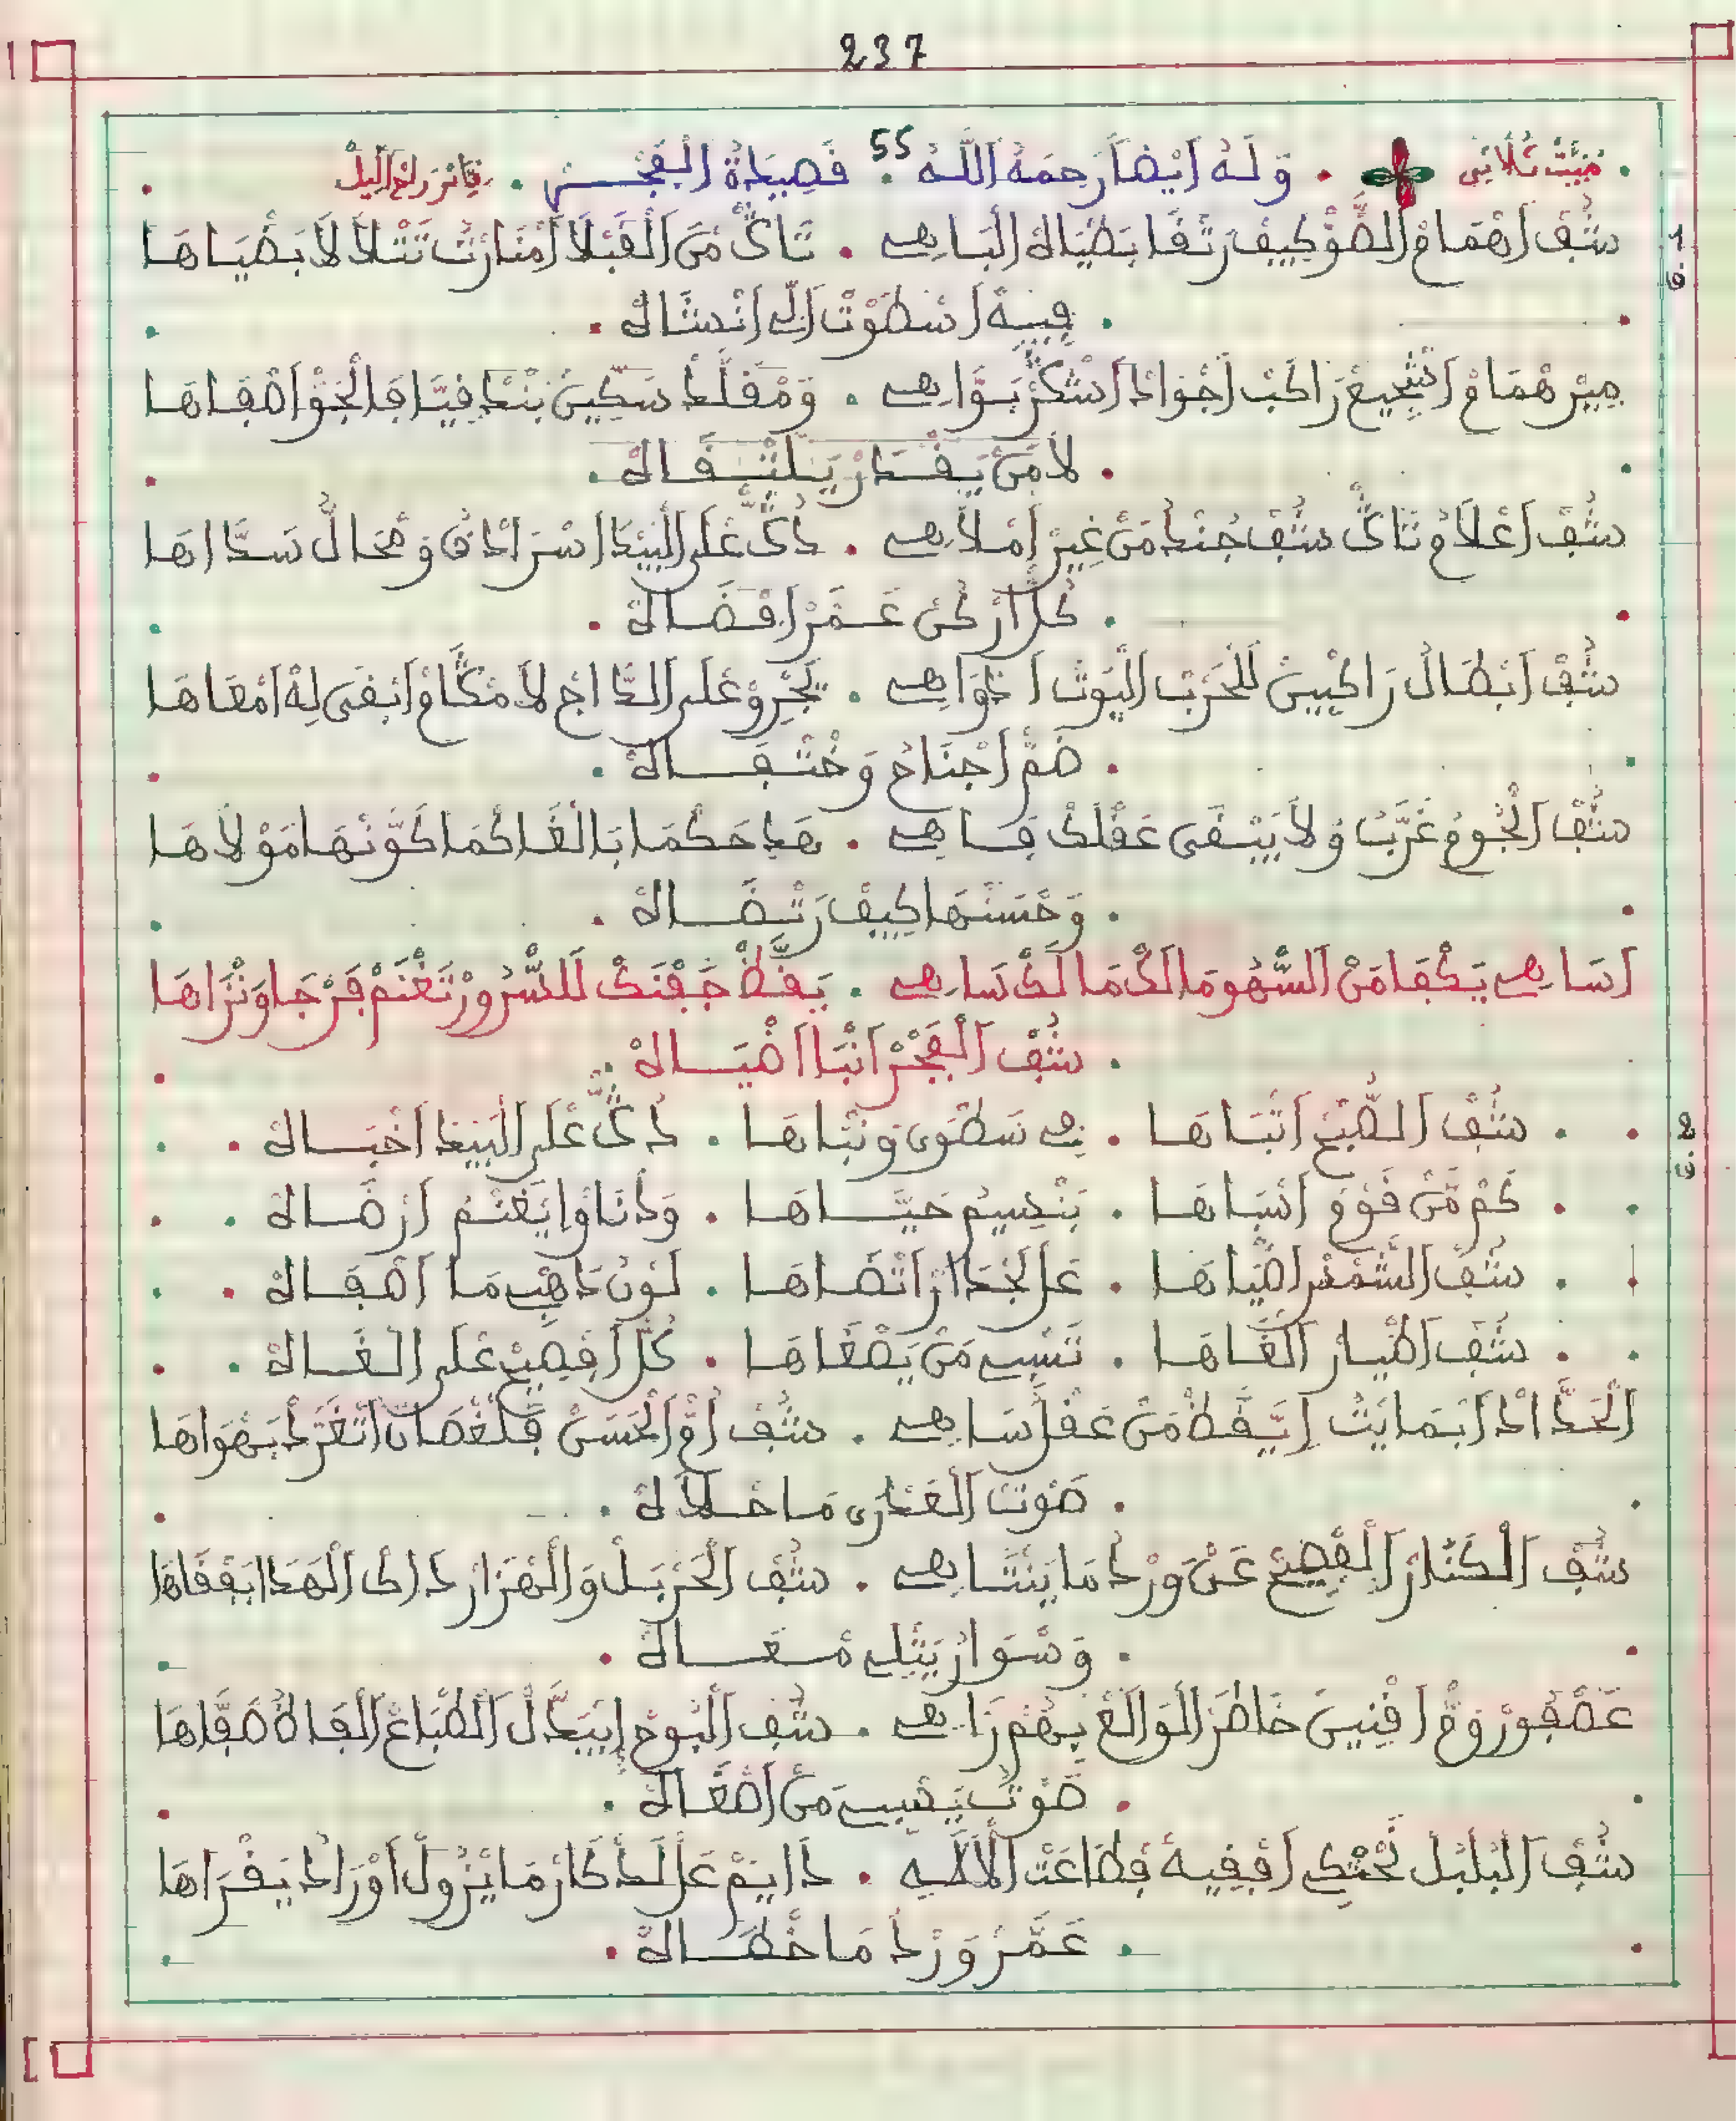 237
مبيت ثلاثي . وَلَهُ اَيْضاً رَحِمَهُ اَللَّهُ 55 قَصِيدَةُ اَلْفَجْر .
شُفْ اَهْمَامْ اَلضَّوْ كِيفْ رَتْقَا بَضْيَاهْ اَلْبَاهِي . تَاكْ مَنْ اَلْقَبْلَا اَمْنَارْتْ تَتْلَالَا بَضْيَاهَا
فِيهْ اَسْطَوْتْ اَلِّي اَنْشَاهْ
مِيرْ هْمَامْ اَشْجِيعْ رَاكَبْ اَجْوَادْ اَشْكَرْ بَوَّاهِي . وَمْقَلَّدْ سَكِّينْ بَنْدقِيَّا فَالْجَوْ اَصْفَاهَا
لَا مَنْ يَقْدَرْ يَلْتْقَاهْ
شُفْ اَعْلَامْ تَاكْ شُفْ جُنْدُ مَنْ غِيرْ اَمْلَاهِي . دَكْ عْلَى اَلْبَيْدَا اَسْرَادْقُ وَمْحَالُ سَدَّاهَا
كُلْ اَرْكُنْ عَمَّرْ اَفْضَاهْ
شُفْ اَبْطَالُ رَاكْبِينْ لَلْحَرْبْ اَلْيُوتْ اَدْوَاهِي . يَجْرِوْ عْلَى اَلدَّاجْ لَا مْكَامْ اَبْقَى لِهْ اَمْعَاهَا
ضَمْ اَجْنَاحُ وَخْتْفَاهْ
شُفْ اَلنّْجُومْ غَرَّبُ وَلَا يَبْقَى عَقْلَكْ فَاهِي . هَدِ حَكْمَا بَالْغَا كْمَا كَوَّنْهَا مَوْلَاهَا
وَحْسَنْهَا كِيفْ رَتْضَاهْ
اَسَاهِي يَكْفَا مَنْ اَلسّْهُو مَالَكْ مَالَكْ سَاهِي . يَقَّظْ جَفْنَكْ لَلسّْرُورْ تَغْنَمْ فَرْجَا وَنْزَاهَا
شُفْ اَلْفَجْرْ اَنْبَا اَضْيَاهْ
شُفْ اَلصُّبْحْ اَنْبَاهَا . فِي سَطْوَى وَنْبَاهَا . دَكْ عْلَى اَلْبَيْدَا اَخْبَاهْ
كَمْ مَنْ قَوْمْ اَنْسَاهَا . بَنْسِيمْ حَيَّاهَا . وَدْنَاوْا يَغْنَمْ اَرْضَاهْ
شُفْ اَلشَّمْسْ اَضْيَاهَا . عَلَ لَجْدَارْ اَنْضَاهَا . لَوْنْ دَاهْبِي مَا اَصْفَاهْ
شُفْ اَطْيَارْ اَلْغَاهَا . تَسْبِي مَنْ يَصْغَاهَا . كُلْ اَفْصِيحْ عْلَى اَلْغَاهْ
اَلْحَدَّادْ اَبْمَايَتْ اِيَّقَّظْ مَنْ عَقْلُ سَاهِي . شُفْ اَمْ اَلْحَسَنْ فَلَغْصَانْ اَتْغَرَّدْ بَهْوَاهَا
صَوْتْ اَلْعَدْرِي مَا خْلَاهْ
شُفْ اَلْكَنَّارْ اَلْفْصِيحْ عَنْ وَرْدُ مَا يَنْشَاهِي . شُفْ اَلْحَرْبَلْ وَالْهَزَارْ دَاكْ اَلْهَدَا يَقْفَاهَا
وَسْوَارْ يَتْلِي مْعَاهْ
عَصْفُورْ وَمْ اَقْنِينْ خَاطَرْ اَلْوَالَعْ بِهُمْ زَاهِي . شُفْ اَلْبُوحْ اِيبَدَّلْ اَلطّْبَاعْ اَلْفَاظُ صَفَّاهَا
صَوْتُ يَسْبِي مَنْ اَصْغَاهْ
شُفْ اَلْبُلْبُلْ تَحْكِي اَفْقِيهْ فْطَاعَتْ اَلْاَلَهِ . دَايَمْ عَلَ لَدْكَارْ مَا يْزُولْ اَوْرَادُ يَقْرَاهَا
عَمَّرْ وَرْدُ مَا خْطَاهْ